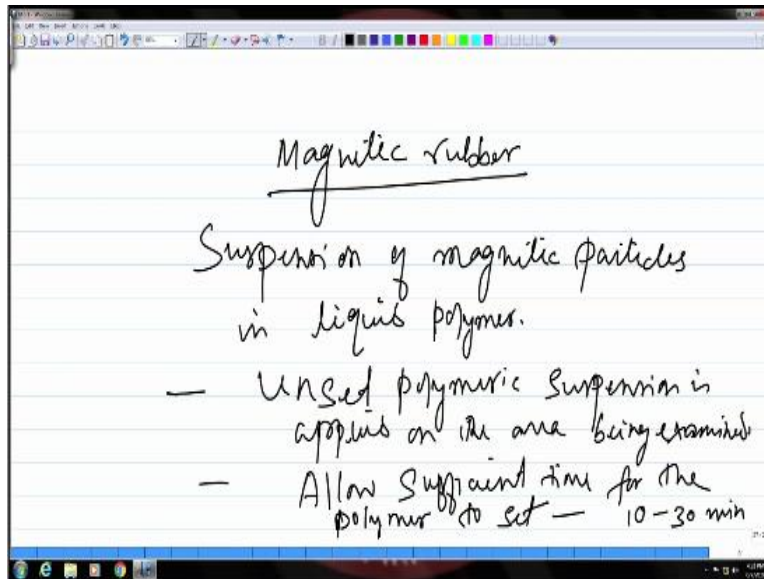 Magnetic rubber
Suspension of magnetic particles
in liquid polymer.
— Unset polymeric suspension is
applied on the area being examined
— Allow sufficient time for the
polymer to set — 10-30 min